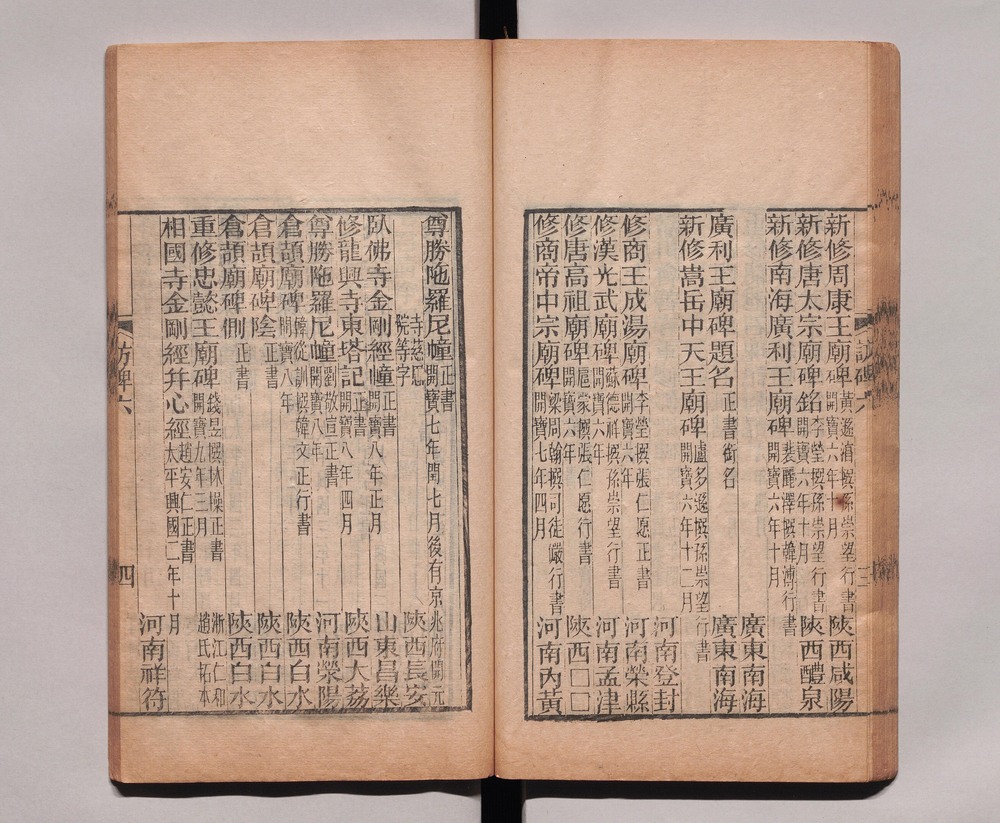 新修周康王廟碑 黃遜濬撰孫崇望行書 開寶六年十月 陝西咸陽
新修唐太宗廟碑銘 李瑩撰孫崇望行書 開寶六年十月 陝西醴泉
新修南海廣利王廟碑 裴麗澤撰韓溥行書 開寶六年十月 廣東南海
廣利王廟碑題名 正書銜名 廣東南海
新修嵩岳中天王廟碑 盧多遜撰孫崇望行書 開寶六年十二月 河南登封
修商王成湯廟碑 李瑩撰張仁愿正書 開寶六年 河南榮縣
修漢光武廟碑 蘇德祥撰孫崇望行書 開寶六年 河南孟津
修唐高祖廟碑 扈蒙撰張仁愿行書 開寶六年 陝西□□
修商帝中宗廟碑 梁周翰撰司徒儼行書 開寶七年四月 河南內黃
訪碑六
三
尊勝陁羅尼幢 正書 開寶七年閏七月後有京兆府開元
寺慈恩
院等字 陝西長安
臥佛寺金剛經幢 正書 開寶八年正月 山東昌樂
修龍興寺東塔記 正書 開寶八年四月 陝西大荔
尊勝陁羅尼幢 劉敬宣正書 開寶八年 河南滎陽
倉頡廟碑 韓從訓撰韓文正行書 開寶八年 陝西白水
倉頡廟碑陰 正書 陝西白水
倉頡廟碑側 正書 陝西白水
重修忠懿王廟碑 錢昱撰林操正書 開寶九年三月 浙江仁和 趙氏拓本
相國寺金剛經幷心經 趙安仁正書 太平興國二年十月 河南祥符
訪碑六
四